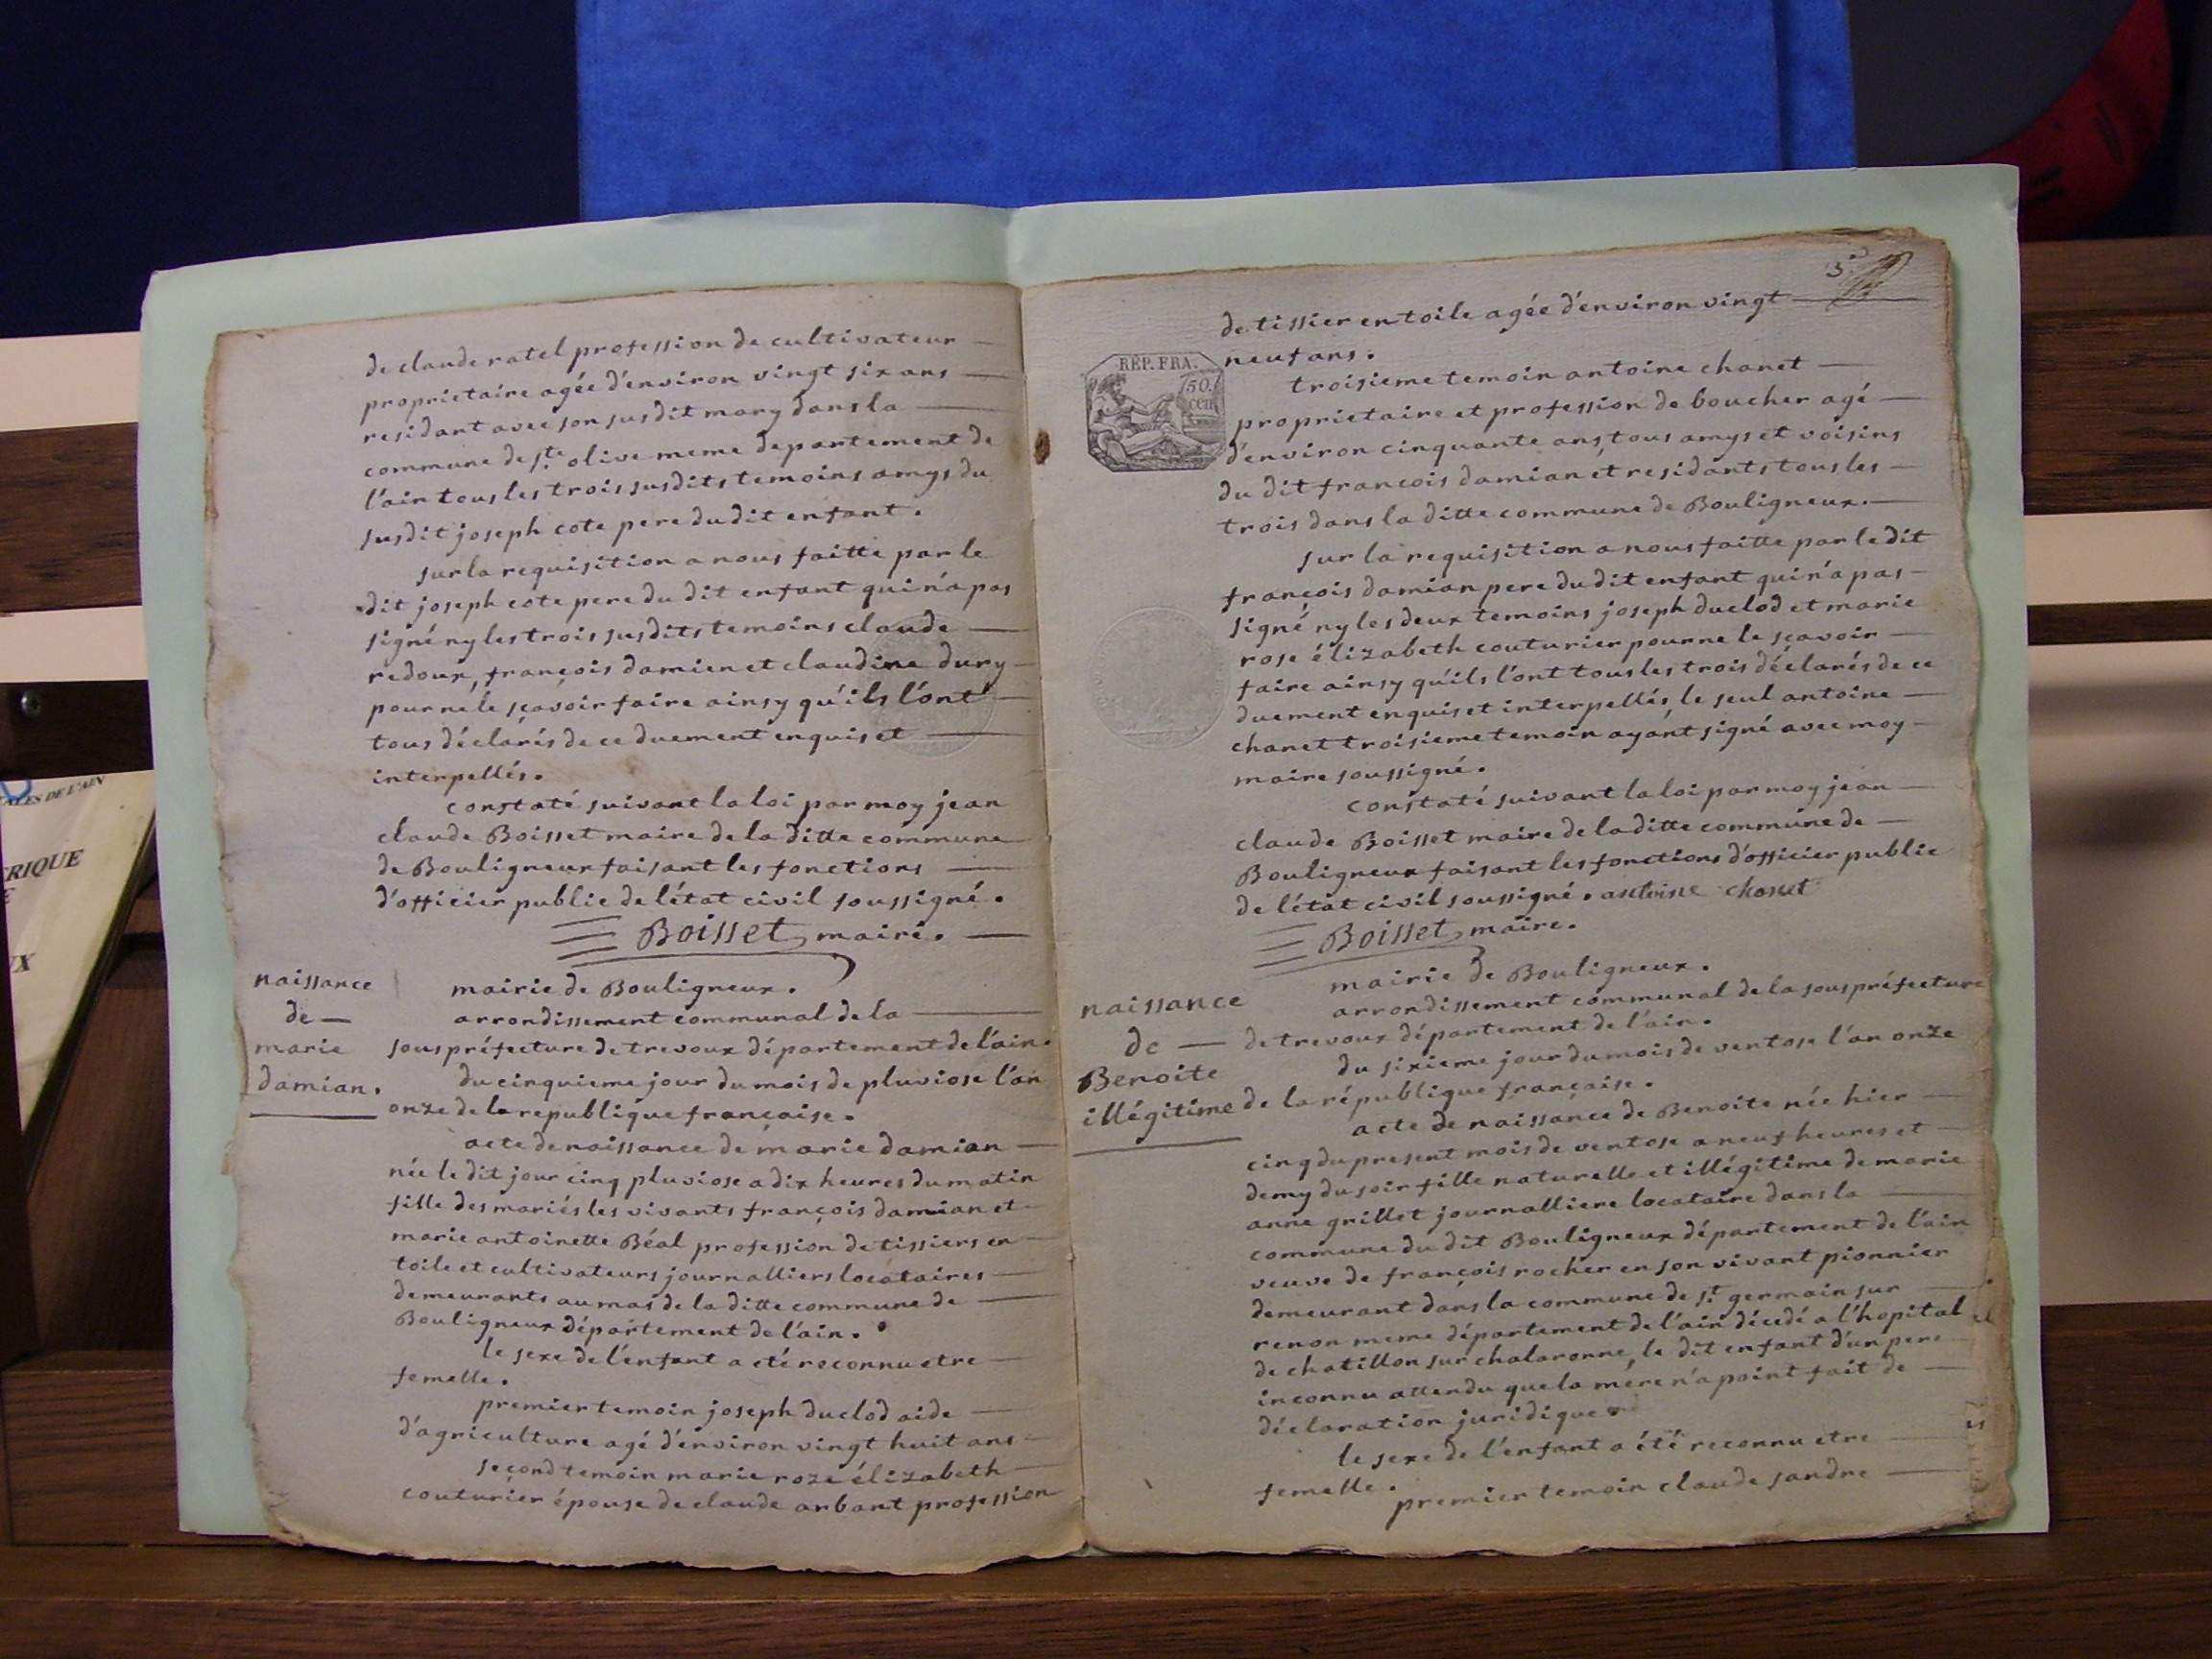 de claude ratel profession de cultivateur
propriétaire agée d'environ vingt six ans
residant avec son susdit mary dans la
commune de ste olive meme departement de
l'ain tous les trois susdits temoins amys du
susdit joseph cote pere du dit enfant.
sur la requisition a nous faitte par le
dit joseph cote pere du dit enfant qui n'a pas
signé ny les trois susdits temoins claude
redoux, françois damien et claudine dury
pour ne le sçavoir faire ainsy qu'ils l'ont
tous déclarés de ce duement enquis et
interpellés.
constaté suivant la loi par moy jean
claude Boisset maire de la ditte commune
de Bouligneux faisant les fonctions
d'officier public de l'état civil soussigné.
Boisset, maire.
naissance
de
marie
damian.
mairie de Bouligneux.
arrondissement communal de la
souspréfecture de trevoux département de l'ain.
du cinquieme jour du mois de pluviose l'an
onze de la republique française.
acte de naissance de marie damian
née le dit jour cinq pluviose a dix heures du matin
fille des mariés les vivants françois damian et
marie antoinette Béal profession de tissiers en
toile et cultivateurs journalliers locataires
demeurants au mas de la ditte commune de
Bouligneux département de l'ain.
le sexe de l'enfant a été reconnu etre
femelle.
premier temoin joseph duclod aide
d'agriculture agé d'environ vingt huit ans
second temoin marie roze élizabeth
couturier épouse de claude arbant profession
3e
de tissier en toile agée d'environ vingt
neuf ans.
REP. FRA.
50.
cen
troisieme temoin antoine chanet
propriétaire et profession de boucher agé
d'environ cinquante ans, tous amys et voisins
du dit francois damian et residants tous les
trois dans la ditte commune de Bouligneux.
sur la requisition a nous faitte par le dit
françois damian pere du dit enfant qui n'a pas
signé ny les deux temoins joseph duclod et marie
rose élizabeth couturier pour ne le sçavoir
faire ainsy qu'ils l'ont tous les trois déclarés de ce
duement enquis et interpellés, le seul antoine
chanet troisieme temoin ayant signé avec moy
maire soussigné.
constaté suivant la loi par moy jean
claude Boisset maire de la ditte commune de
Bouligneux faisant les fonctions d'officier public
de l'état civil soussigné. antoine chanet
Boisset, maire.
naissance
de
Benoite
illégitime
mairie de Bouligneux.
arrondissement communal de la souspréfecture
de trevoux département de l'ain.
du sixieme jour du mois de ventose l'an onze
de la république française.
acte de naissance de Benoite née hier
cinq du present mois de ventose a neuf heures et
demy du soir fille naturelle et illégitime de marie
anne grillet journalliere locataire dans la
commune du dit Bouligneux département de l'ain
veuve de françois rocher en son vivant pionnier
demeurant dans la commune de st germain sur
renon meme département de l'ain décédé a l'hopital
de chatillon sur chalaronne, le dit enfant d'un pere
inconnu attendu que la mere n'a point fait de
déclaration juridique.
le sexe de l'enfant a été reconnu etre
femelle.
premier temoin claude sandre
RIQUE